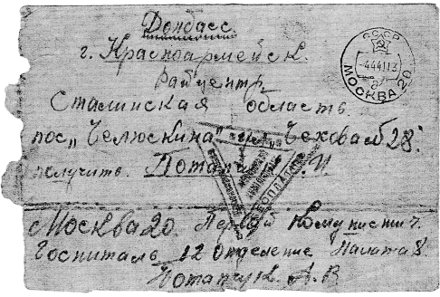 Донбасс.
г. Красноармейск.
Райцентр
Сталинская область.
пос. "Челюскина" ул. Чехова №28.
получить Потапчук
СССР
МОСКВА 20
БЕСПЛАТНО
Москва 20 Первый Комунистич.
Госпиталь 12 отделение Палата 8.
Потапчук А. В